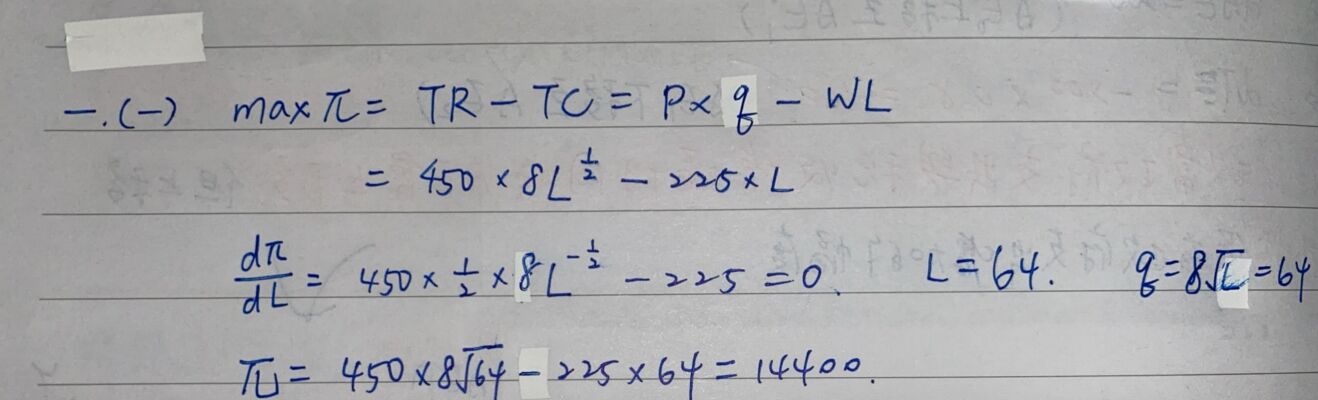 一.(一) max π = TR - TC = P× q - WL
= 450 × 8L^{1/2} - 225 × L
dπ/dL = 450 × 1/2 × 8L^{-1/2} - 225 = 0. L = 64. q = 8√L = 64
π = 450 × 8√64 - 225 × 64 = 14400.